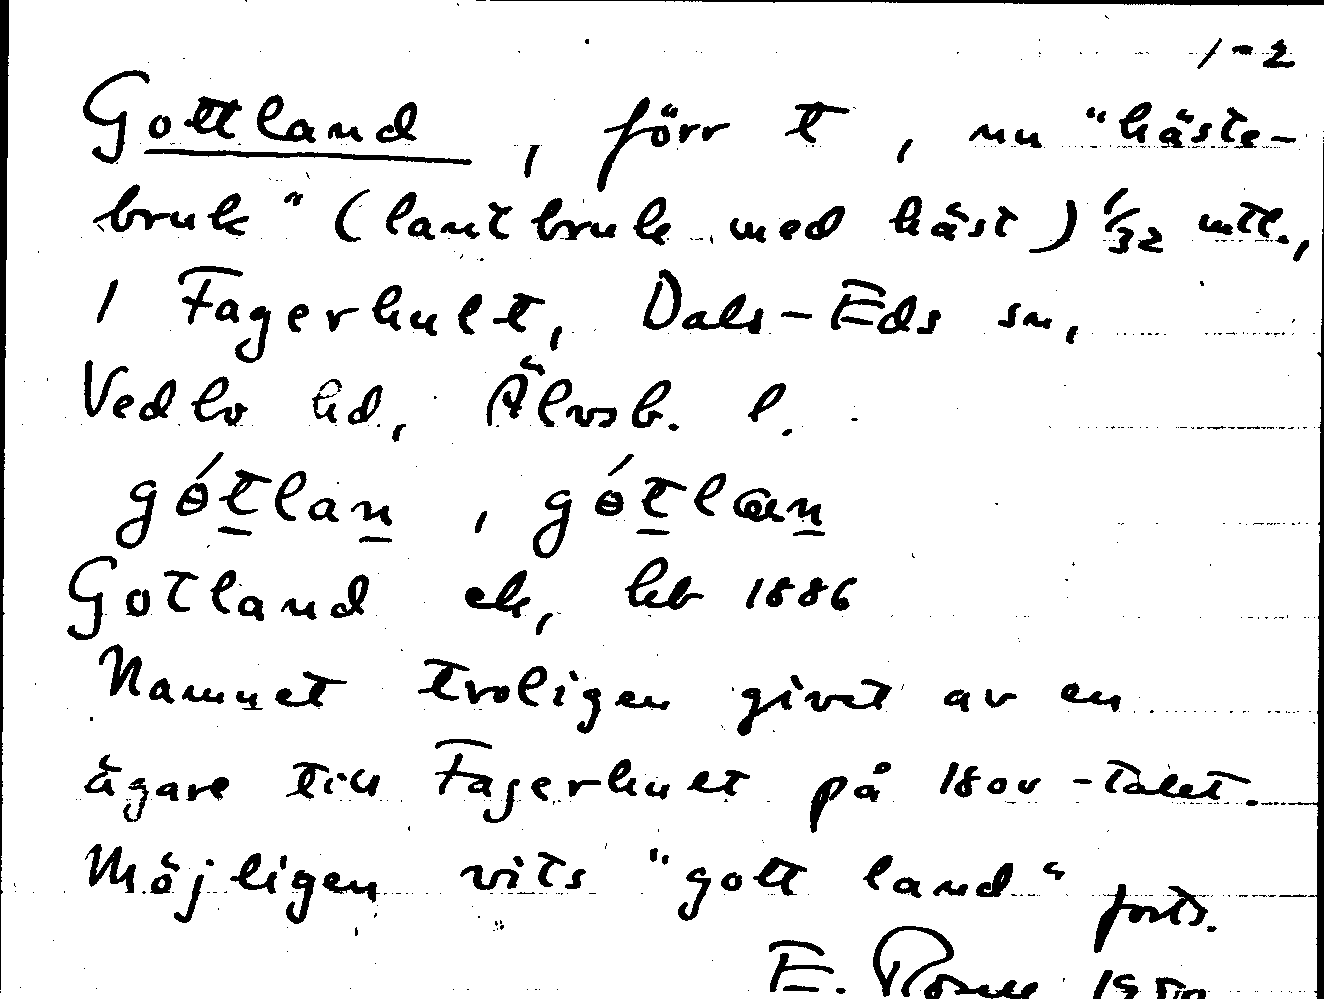 1-2
Gottland, förr t, nu "häste-
bruk" (lantbruk med häst) 1/32 mtl.,
1 Fagerhult, Dals-Eds sn,
Vedbo hd, Älvsb. l.
gótlan, gótlan
Gotland ek, hb 1886
Namnet troligen givet av en
ägare till Fagerhult på 1800-talet.
Möjligen vits "gott land" forts.
E.